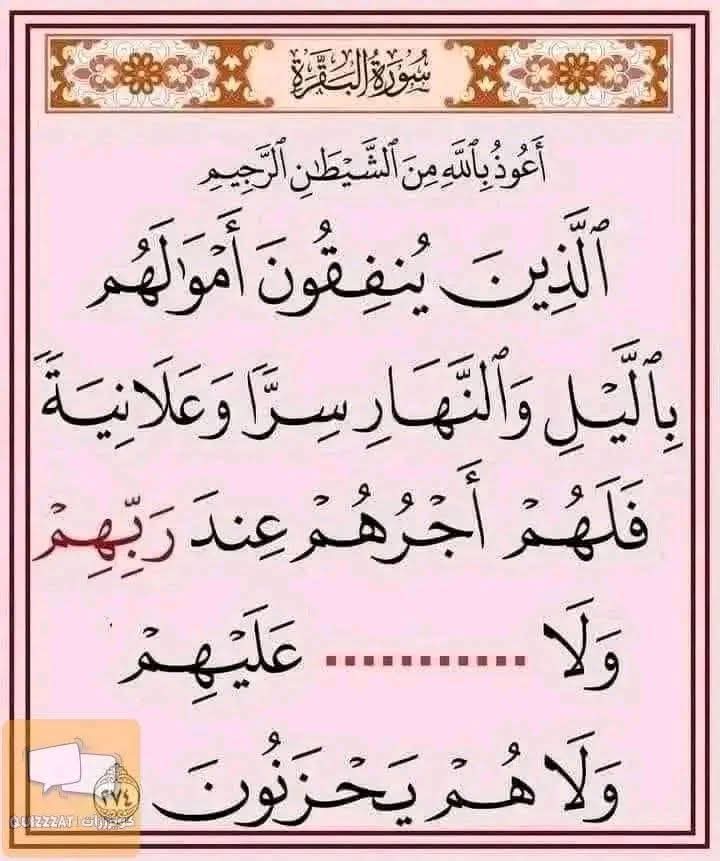 سُورَةُ البَقَرَةِ
أَعُوذُ بِٱللَّهِ مِنَ ٱلشَّيْطَٰنِ ٱلرَّجِيمِ
ٱلَّذِينَ يُنفِقُونَ أَمْوَٰلَهُم
بِٱلَّيْلِ وَٱلنَّهَارِ سِرًّا وَعَلَانِيَةً
فَلَهُمْ أَجْرُهُمْ عِندَ رَبِّهِمْ
وَلَا ........... عَلَيْهِمْ
وَلَا هُمْ يَحْزَنُونَ ٢٧٤
QUIZZZAT | كويزززات